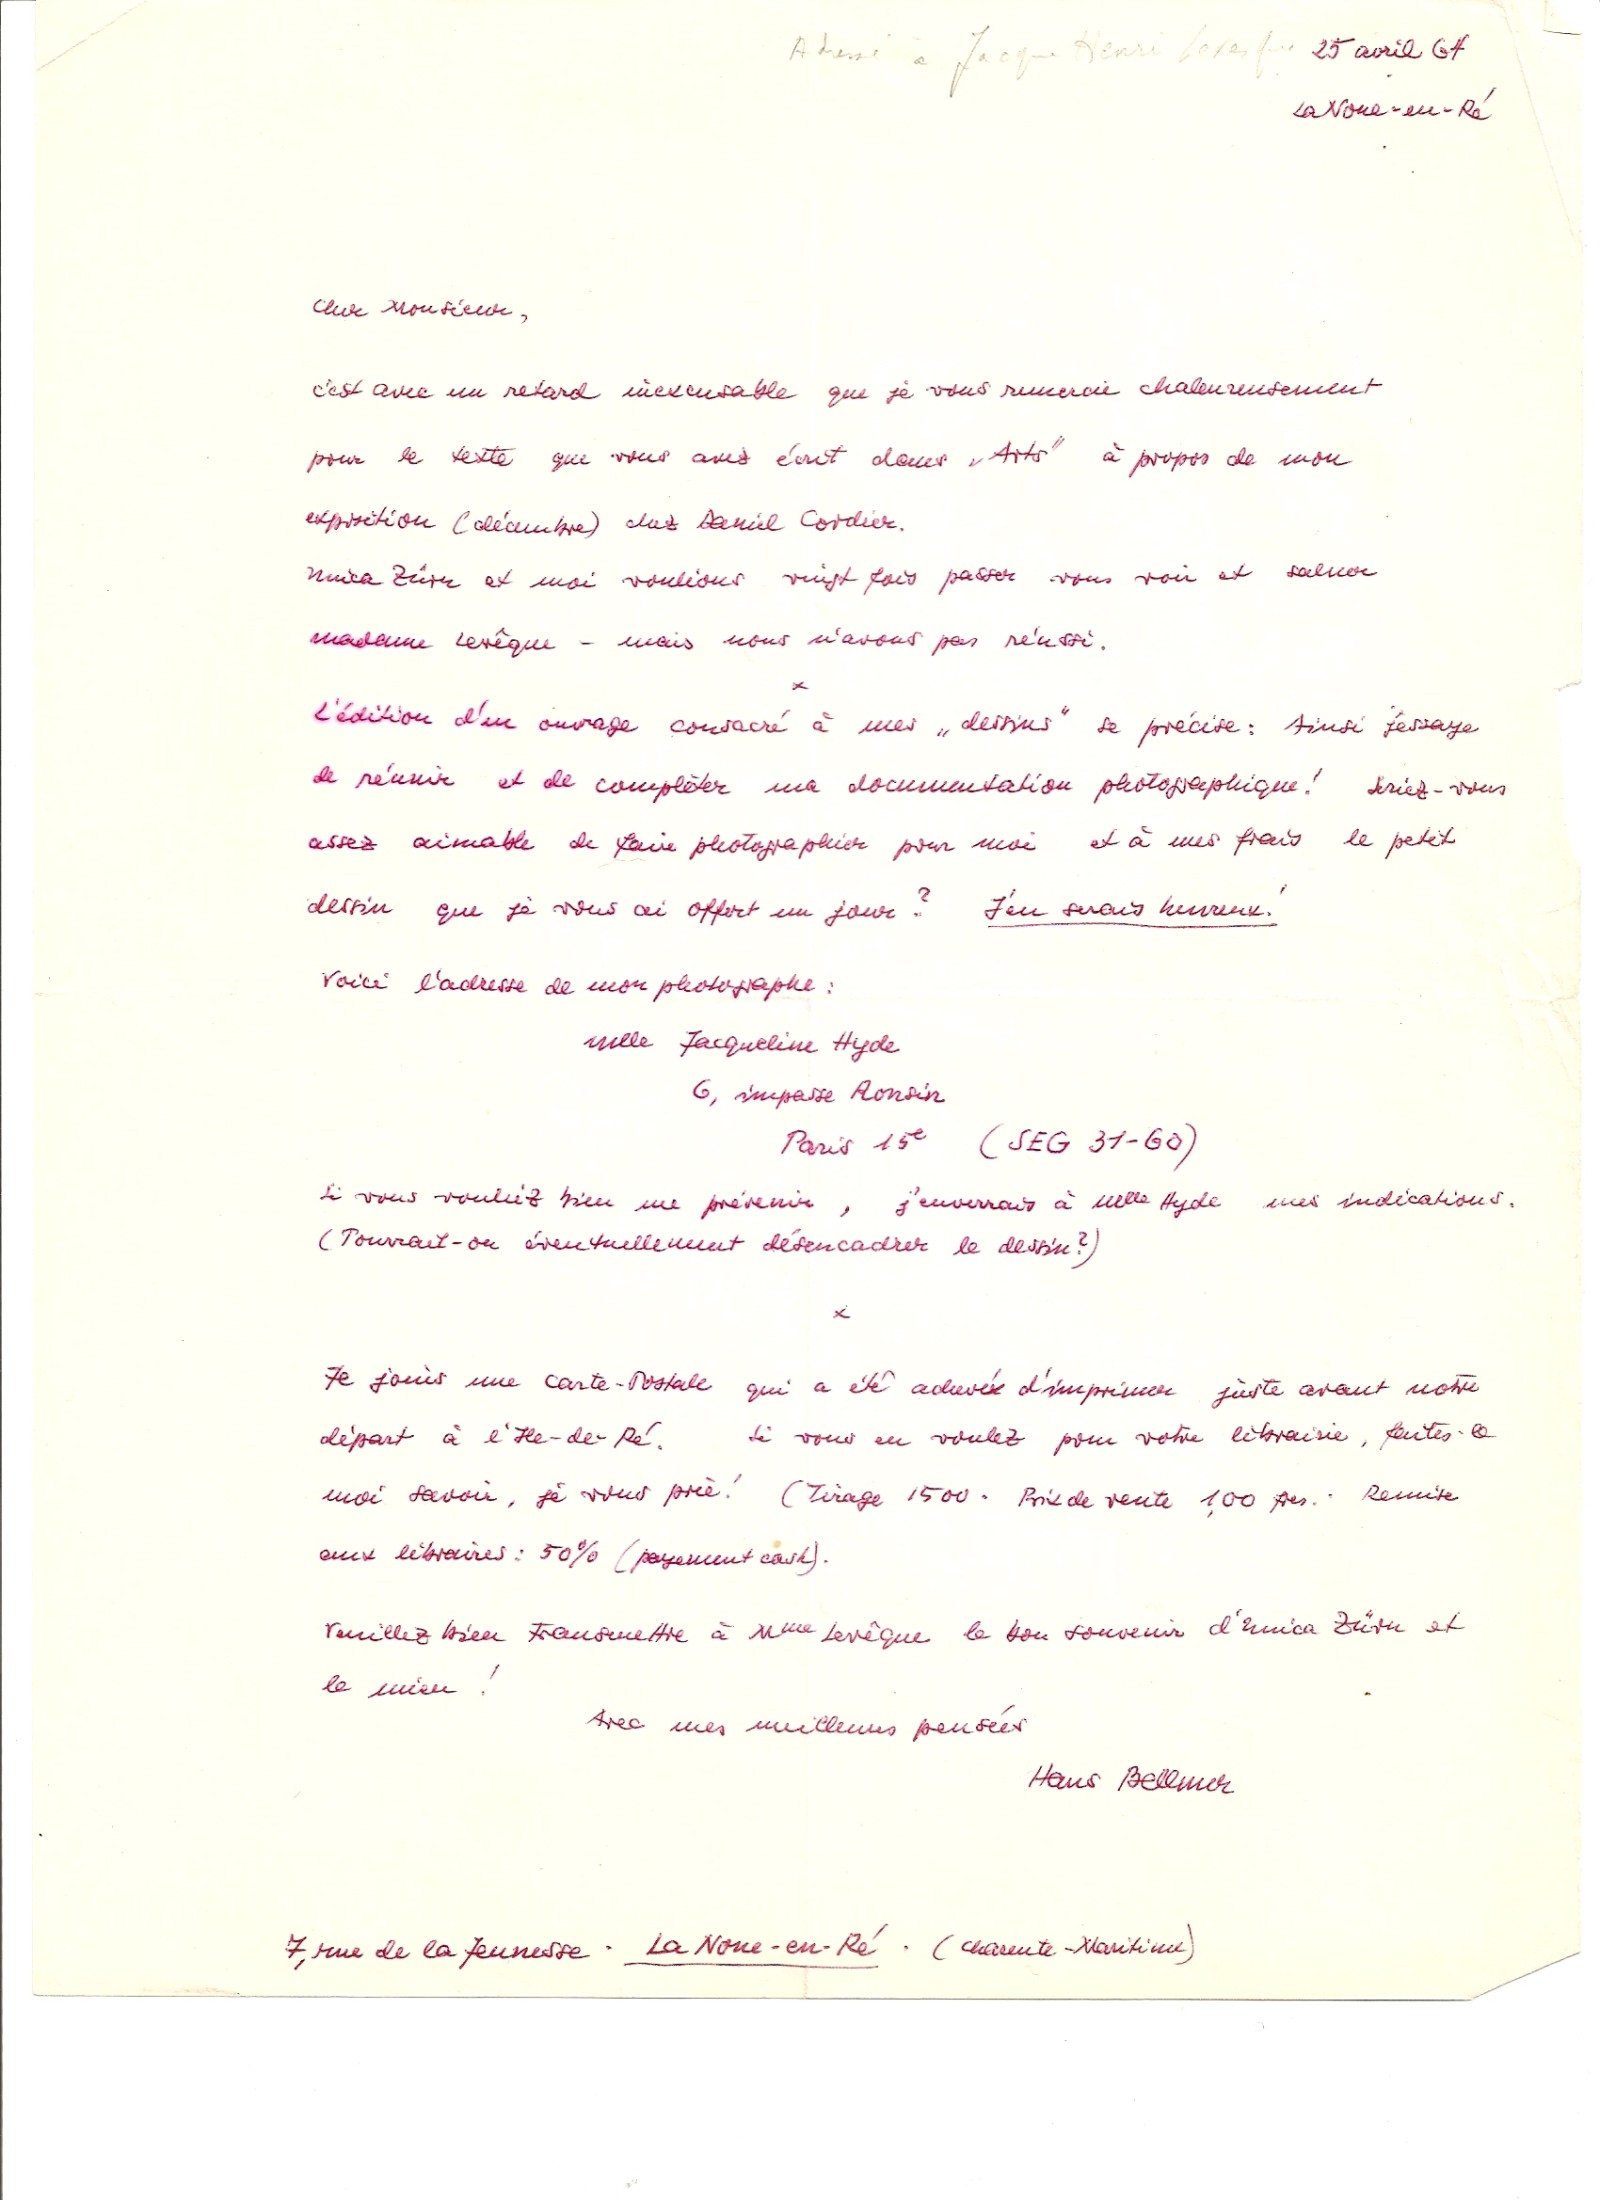 Adressé à Jacque Henri Levesque 25 avril 64
La Noue-en-Ré
Cher Monsieur,
c'est avec un retard inexcusable que je vous remercie chaleureusement
pour le texte que vous avez écrit dans „Arts" à propos de mon
exposition (décembre) chez Daniel Cordier.
Unica Zürn et moi voulions vingt fois passer vous voir et saluer
madame Levêque - mais nous n'avons pas réussi.
x
L'édition d'un ouvrage consacré à mes „dessins" se précise: Ainsi j'essaye
de réunir et de compléter ma documentation photographique! Seriez-vous
assez aimable de faire photographier pour moi et à mes frais le petit
dessin que je vous ai offert un jour? J'en serais heureux!
Voici l'adresse de mon photographe:
Melle Jacqueline Hyde
6, impasse Ronsin
Paris 15e (SEG 31-60)
Si vous vouliez bien me prévenir, j'enverrais à Melle Hyde mes indications.
(Pourrait-on éventuellement désencadrer le dessin?)
x
Je joins une carte-Postale qui a été achevée d'imprimer juste avant notre
départ à l'Ile-de-Ré. Si vous en voulez pour votre librairie, faites-le
moi savoir, je vous prie! (Tirage 1500. Prix de vente 1,00 frs.. Remise
aux libraires: 50% (payement cash).
Veuillez bien transmettre à Mme Levêque le bon souvenir d'Unica Zürn et
le mien!
Avec mes meilleures pensées
Hans Bellmer
7, rue de la Jeunesse. La Noue-en-Ré. (Charente-Maritime)